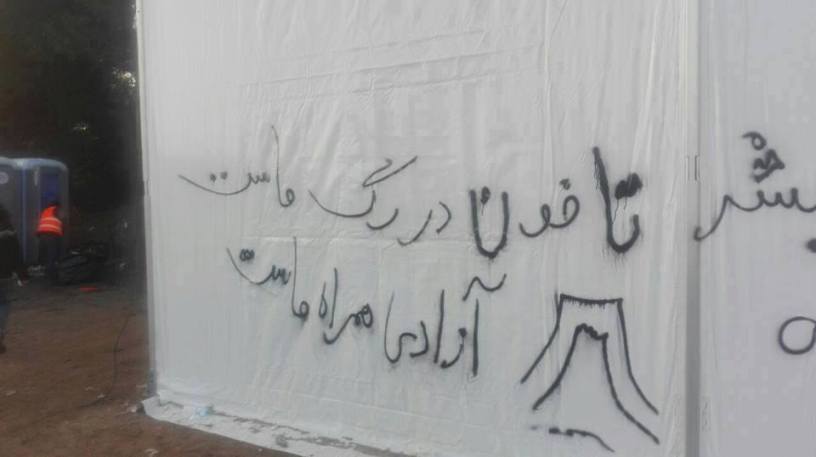 تا خون در رگ ماست
آزادی همراه ماست